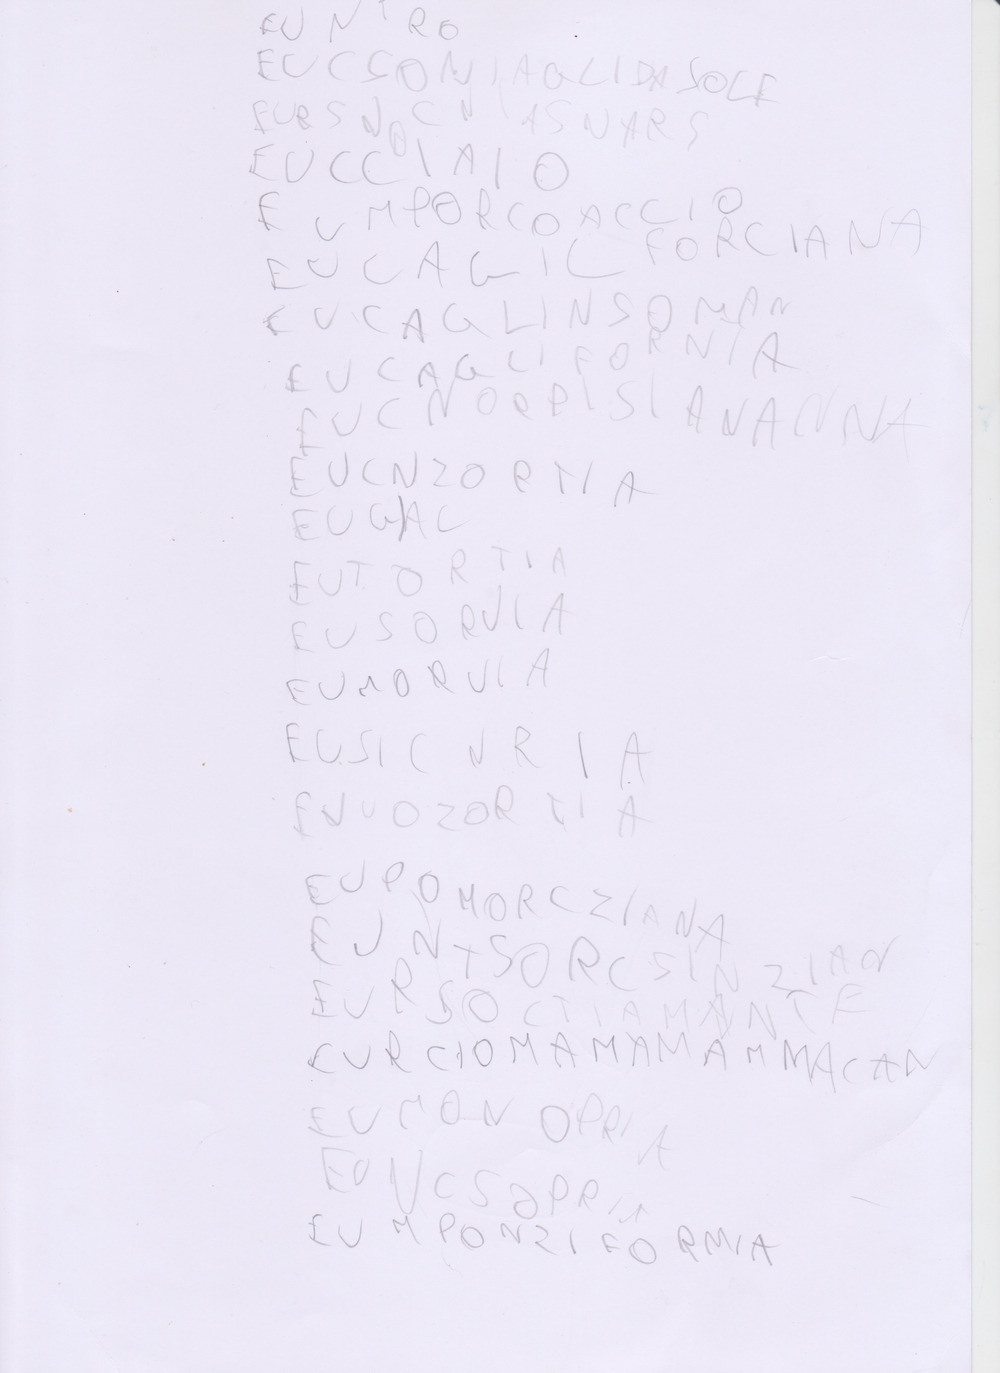 EUNTRO
EUCSONIAGLIDASOLE
EUCCIAIO
EUMPORCOACCIO
EUCAGIC FORCIANA
EUCAGLINSOMAN
EUCAGLIFORNIA
EUCNORPISIANANNA
EUCNZORTIA
EUGAC
EUTORTIA
EUSORVIA
EUMORVIA
EUSICURIA
EUPOMORCZIANA
EUNTSORCSINZIAN
EURSOCTIAMANTE
EURCIOMAMAMAMMACAN
EUMONOPRIA
EUNCSOPRIA
EUMPONZIFORMIA